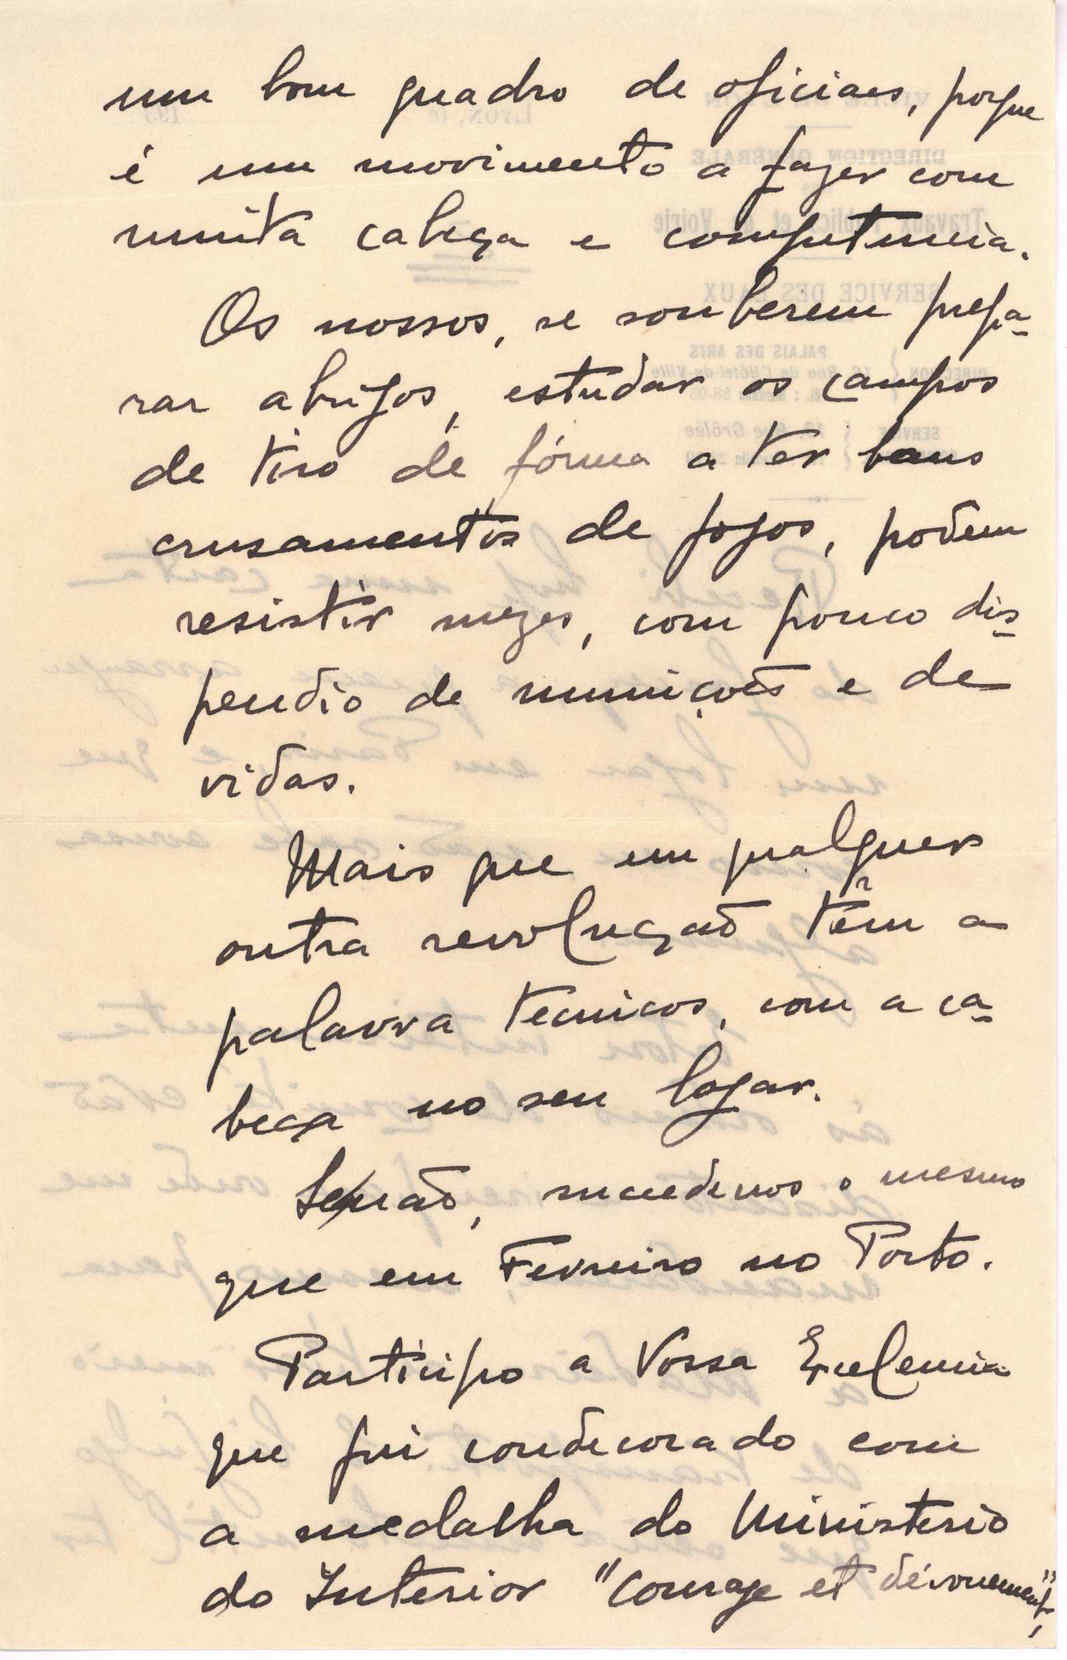 um bom quadro de oficiaes, porque
é um movimento a fazer com
muita cabeça e competencia.
Os nossos, se souberem prepa-
rar abrigos, estudar os campos
de tiro de fórma a ter bons
crusamentos de fogos, podem
resistir mezes, com pouco dis-
pendio de munições e de
vidas.
Mais que em qualquer
outra revolução têm a
palavra tecnicos, com a ca-
beça no seu logar.
Senão, sucedenos o mesmo
que em Fevreiro no Porto.
Participo a Vossa Excelencia
que fui condecorado com
a medalha do Ministerio
do Interior "Courage et dévouement",